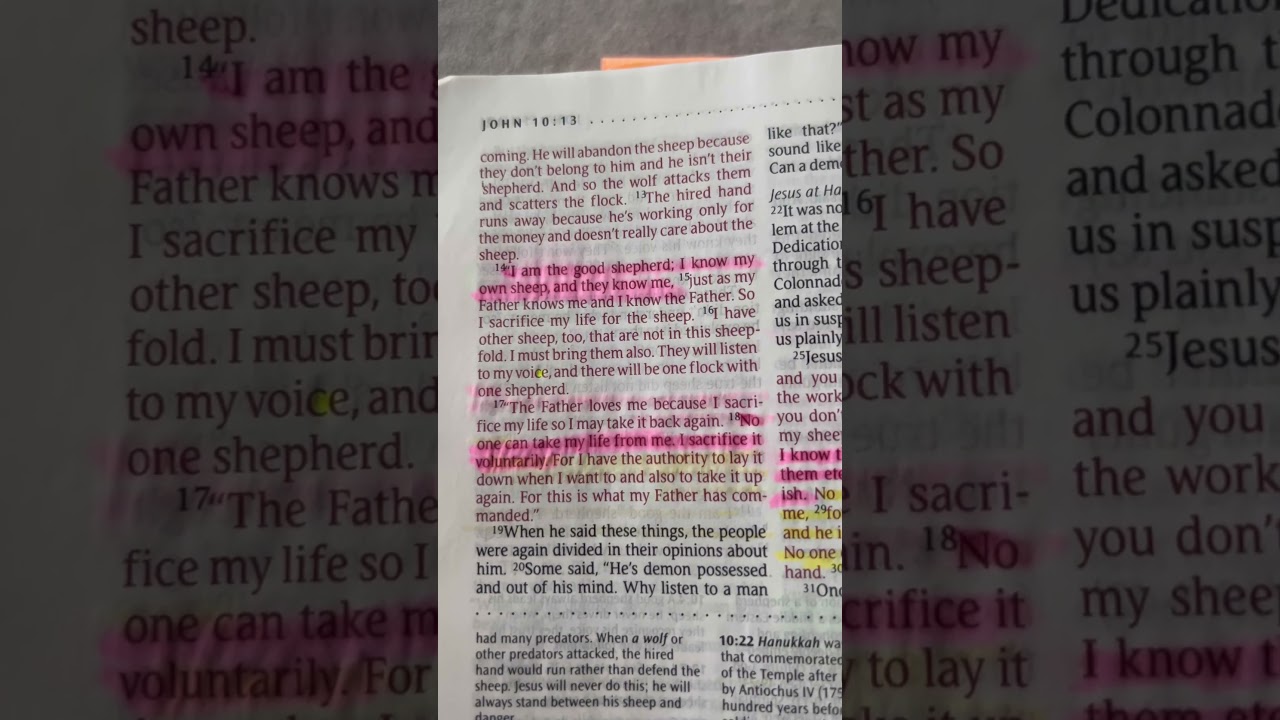 JOHN 10:13
coming. He will abandon the sheep because
they don't belong to him and he isn't their
shepherd. And so the wolf attacks them
and scatters the flock. 13The hired hand
runs away because he's working only for
the money and doesn't really care about the
sheep.
14"I am the good shepherd; I know my
own sheep, and they know me, 15just as my
Father knows me and I know the Father. So
I sacrifice my life for the sheep. 16I have
other sheep, too, that are not in this sheep-
fold. I must bring them also. They will listen
to my voice, and there will be one flock with
one shepherd.
17"The Father loves me because I sacri-
fice my life so I may take it back again. 18No
one can take my life from me. I sacrifice it
voluntarily. For I have the authority to lay it
down when I want to and also to take it up
again. For this is what my Father has com-
manded."
19When he said these things, the people
were again divided in their opinions about
him. 20Some said, "He's demon possessed
and out of his mind. Why listen to a man
like that?"
sound like
Can a dem
Jesus at Ha
22It was no
lem at the
Dedication
through t
Colonnad
and asked
us in susp
us plainly
25Jesus
and you
the work
you don'
my shee
I know t
them ete
ish. No
me, 29fo
and he i
No one
hand. 30
31Onc
had many predators. When a wolf or
other predators attacked, the hired
hand would run rather than defend the
sheep. Jesus will never do this; he will
always stand between his sheep and
danger.
10:22 Hanukkah wa
that commemorated
of the Temple after
by Antiochus IV (175
hundred years befo